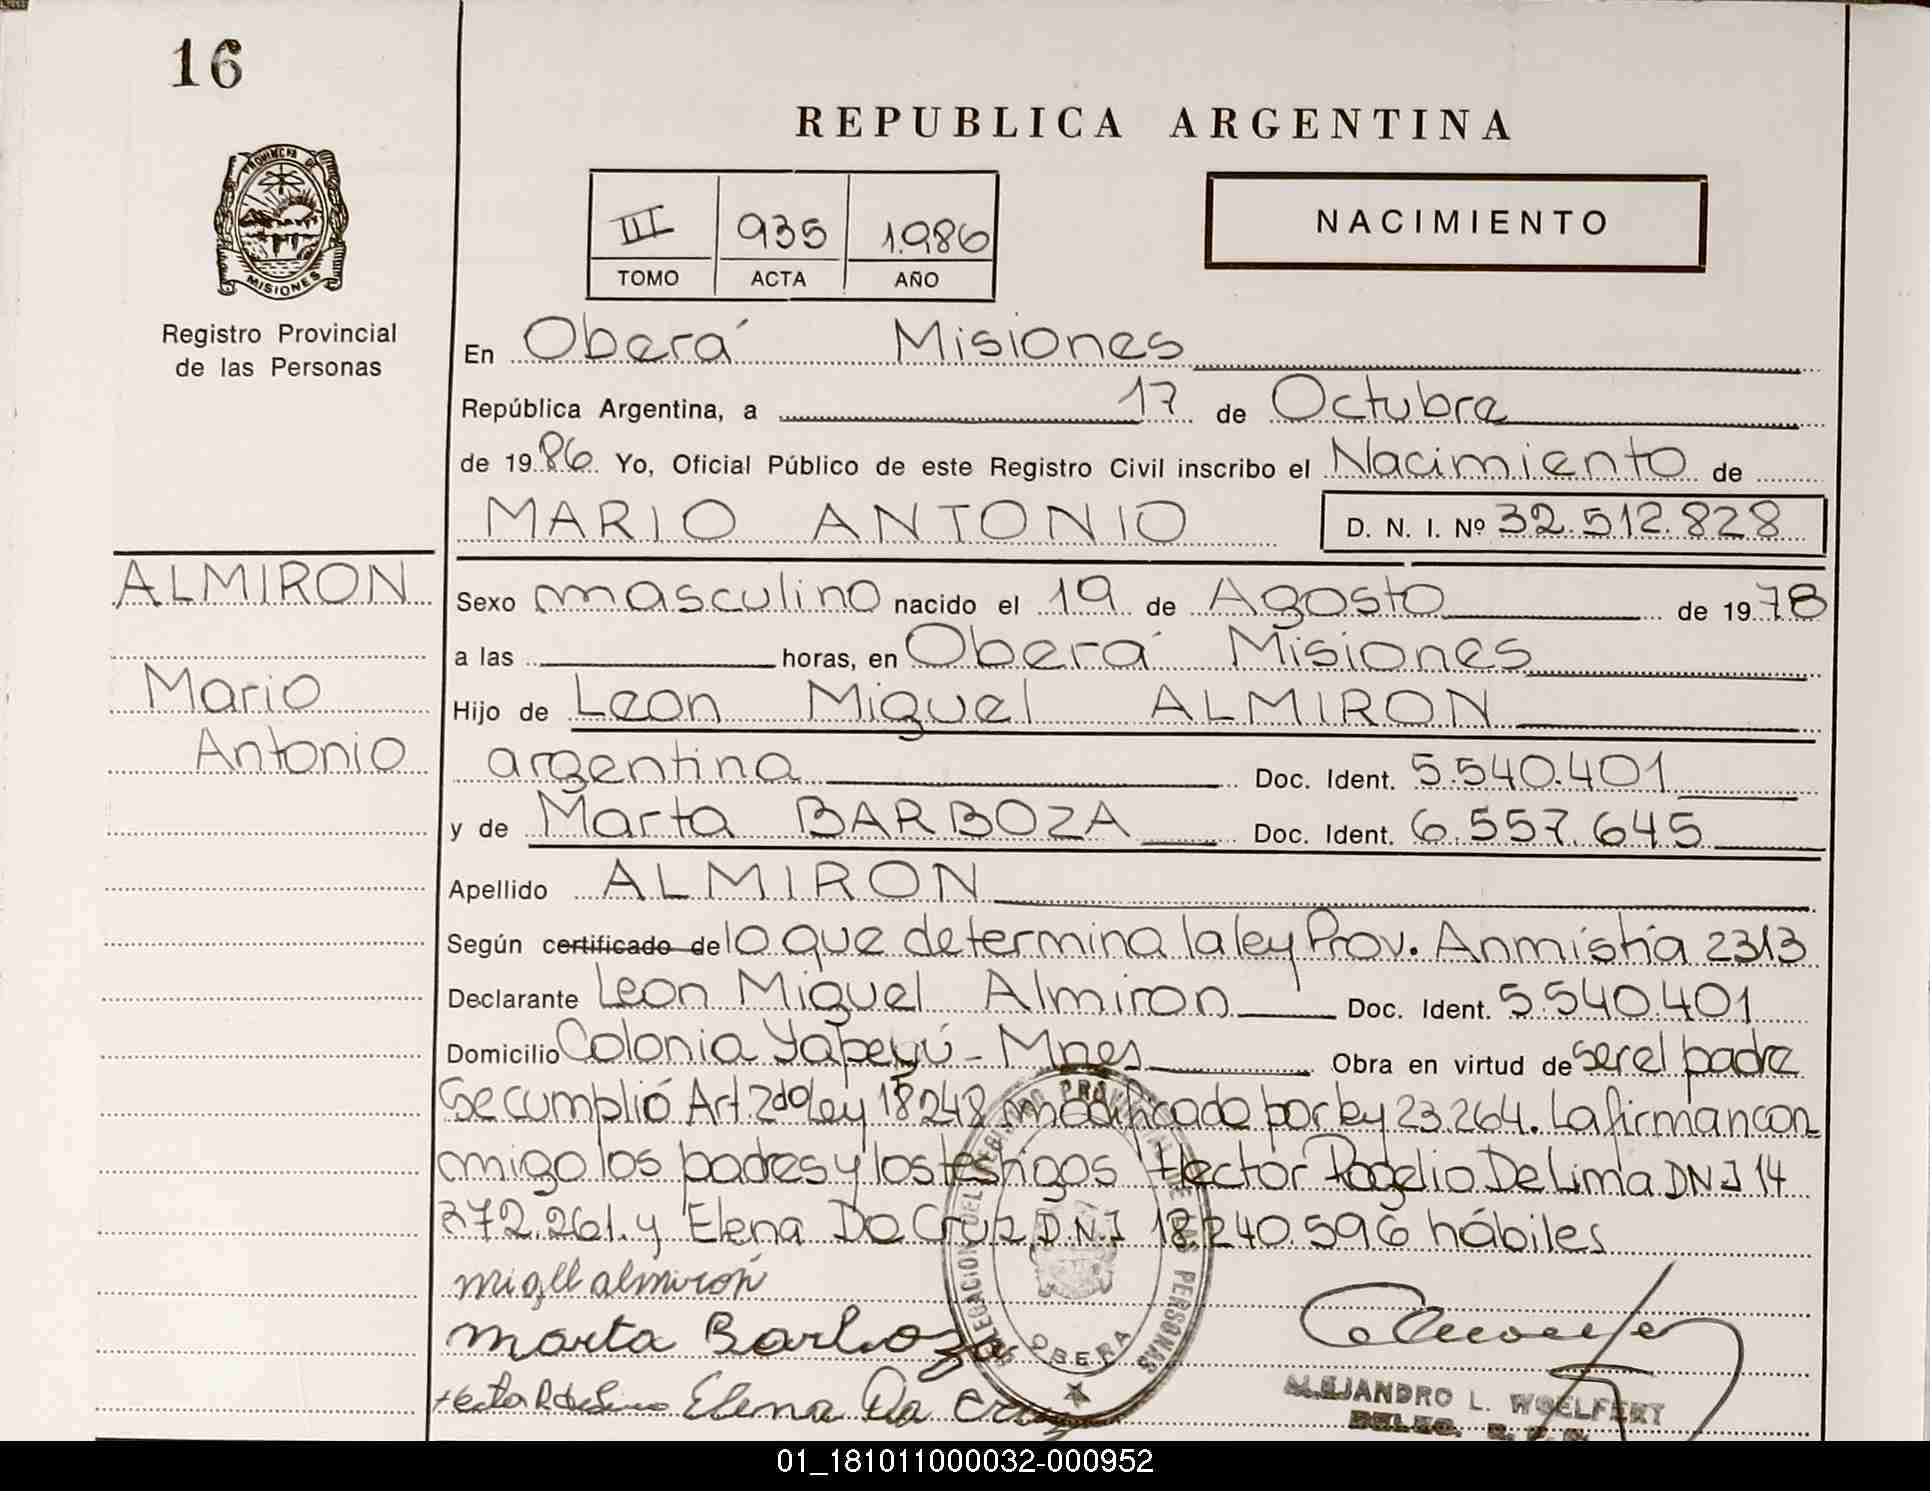 16
REPUBLICA ARGENTINA
PROVINCIA DE
MISIONES
Registro Provincial
de las Personas
III 935 1.986
TOMO ACTA AÑO
NACIMIENTO
En Oberá Misiones
República Argentina, a 17 de Octubre
de 19 86 Yo, Oficial Público de este Registro Civil inscribo el Nacimiento de
MARIO ANTONIO D. N. I. Nº 32.512.828
ALMIRON
Mario
Antonio
Sexo masculino nacido el 19 de Agosto de 19 78
a las horas, en Oberá Misiones
Hijo de Leon Miguel ALMIRON
argentina Doc. Ident. 5.540.401
y de Marta BARBOZA Doc. Ident. 6.557.645
Apellido ALMIRON
Según certificado de lo que determina la ley Prov. Anmistia 2313
Declarante Leon Miguel Almiron Doc. Ident. 5.540.401
Domicilio Colonia Yapeyú - Mnes Obra en virtud de ser el padre
Se cumplió Art. 2do Ley 18248 modificado por ley 23.264. La firman con
migo los padres y los testigos Hector Rogelio De Lima DNI 14
372.261. y Elena Da Cruz D.N.I 18.240.596 hábiles
migell almirón
marta Barboza
Elena Da Cruz
DELEGACION DEL REGISTRO PROVINCIAL DE LAS PERSONAS
OBERA
ALEJANDRO L. WOELFERT
DELEG. R. P. P.
01_181011000032-000952